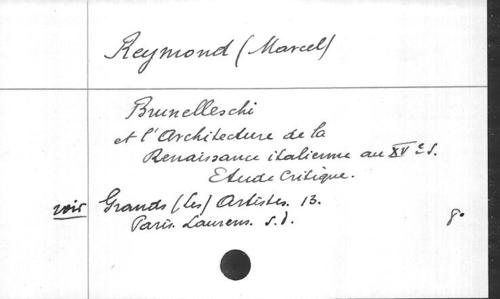 Reymond (Marcel)
Brunelleschi
et l'Architecture de la
Renaissance italienne au XVe s.
Etude Critique.
voir Grands (Les) Artistes. 13.
Paris. Laurens. s.d. 8°